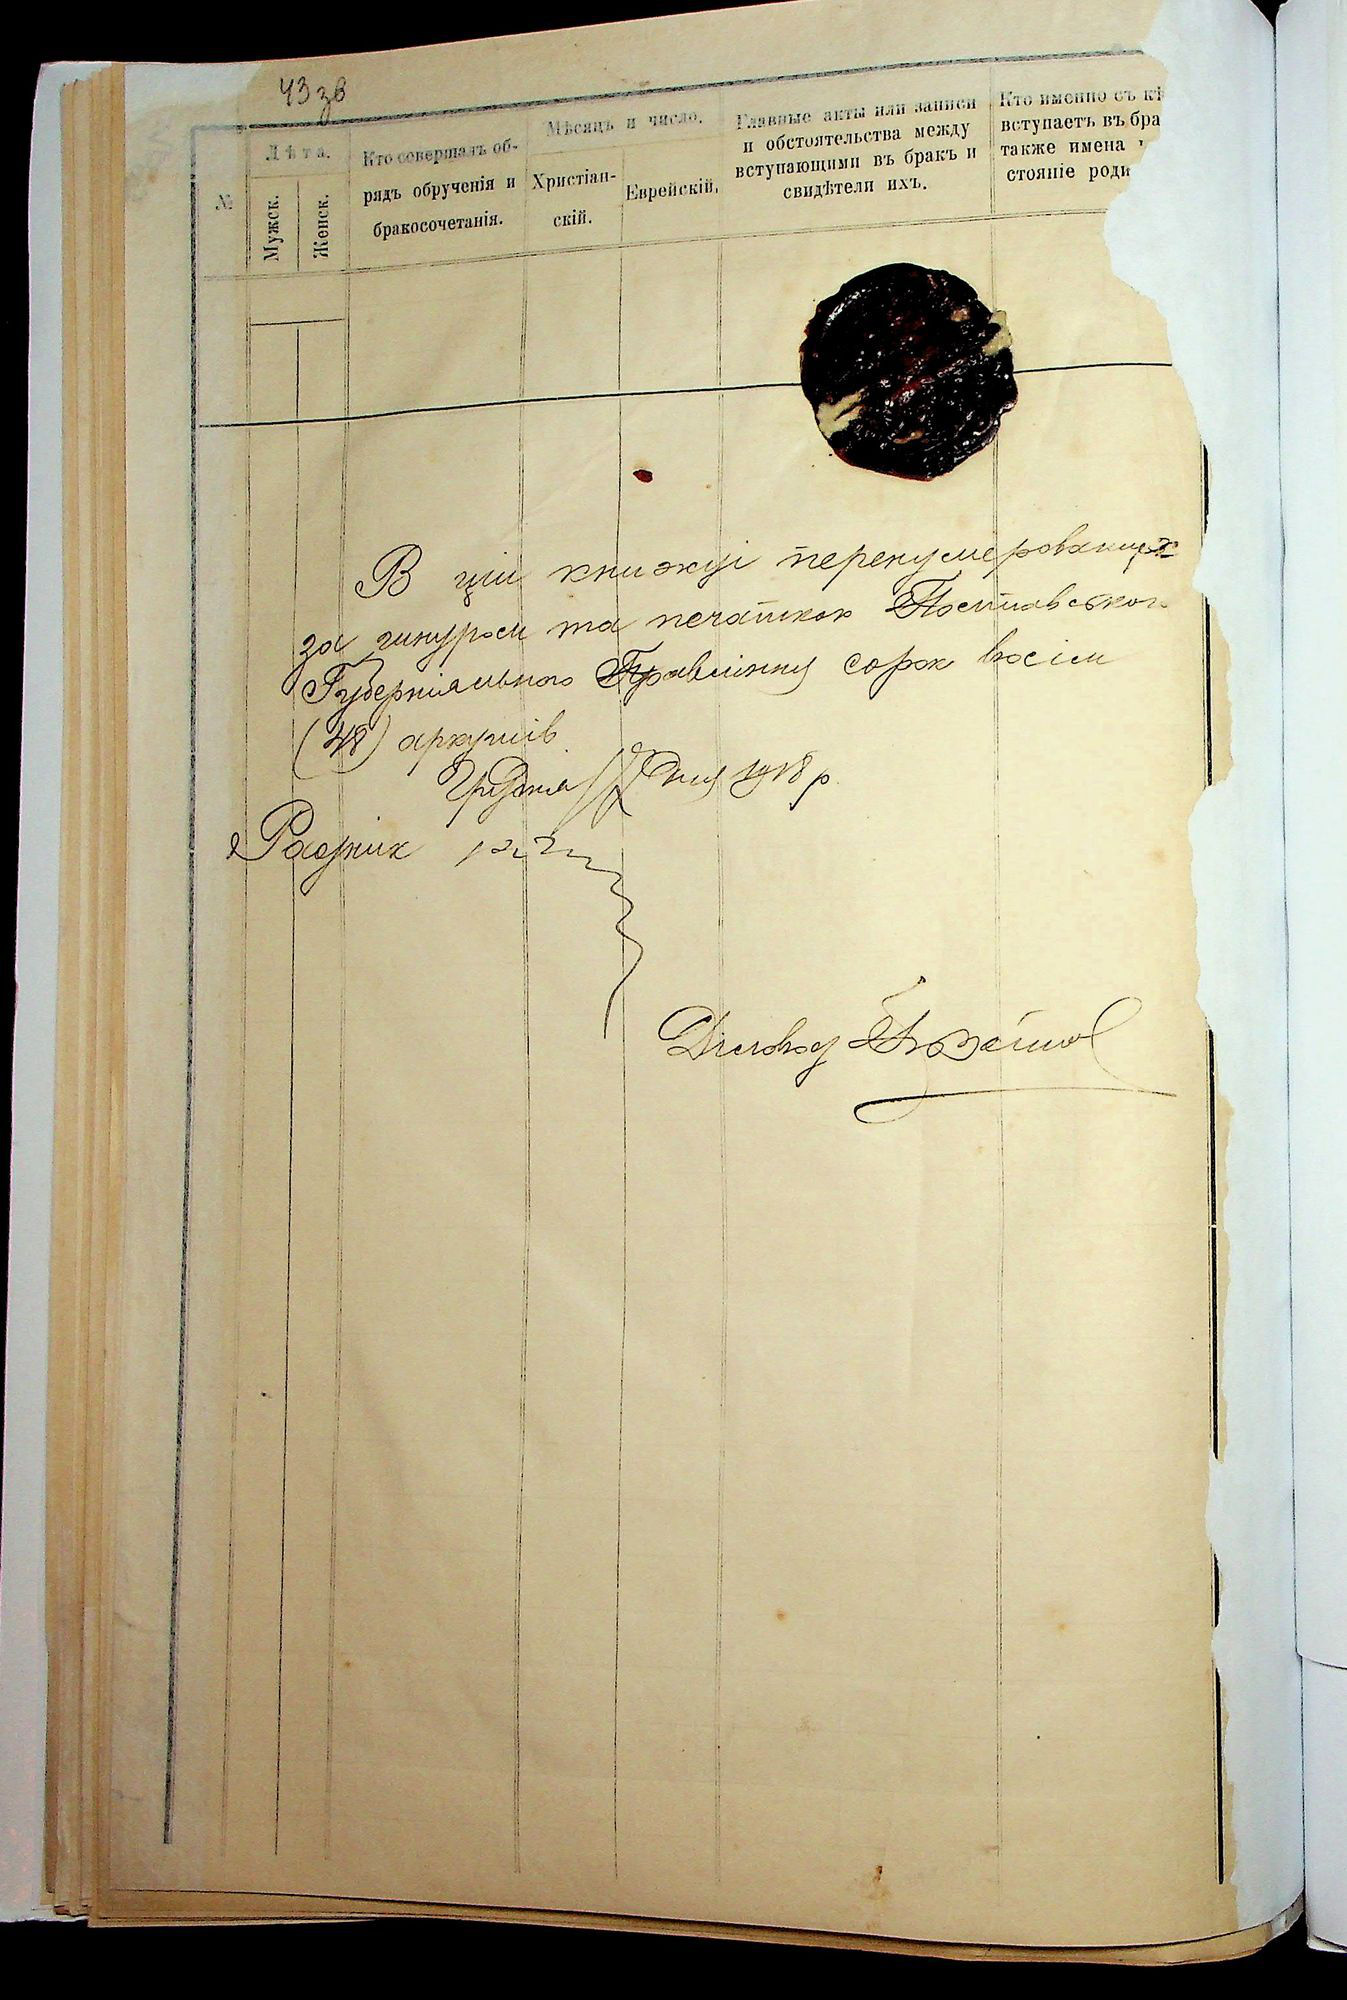 43 зв
№
Лѣта.
Мужск.
Женск.
Кто совершалъ об-
рядъ обрученія и
бракосочетанія.
Мѣсяцъ и число.
Христіан-
скій.
Еврейскій.
Главные акты или записи
и обстоятельства между
вступающими въ бракъ и
свидѣтели ихъ.
Кто именно съ кѣ
вступаетъ въ бра
также имена
стояніе роди
В цій книжці перенумерованих
за шнуром та печаткою Полтавського
Губерніяльного Правління сорок вісім
(48) аркушів
Грудня 17 дня 1918 р.
Радник
Діловод